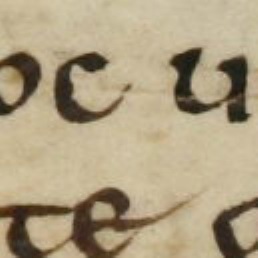 oc u
te